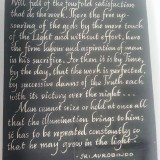 Will of the fruitful satisfaction
that do the work. There the five or
saving of the gods by the mere touch
of the Light and without effort, have
the firm labour and aspiration of man
in his sacrifice. For then it is by him,
by the day, that the work is perfected,
by successive dawns of the Truth each
with its victory over the night...
Man cannot seize or hold at once all
that the illumination brings to him;
it has to be repeated constantly so
that he may grow in the light...
- SRI AUROBINDO